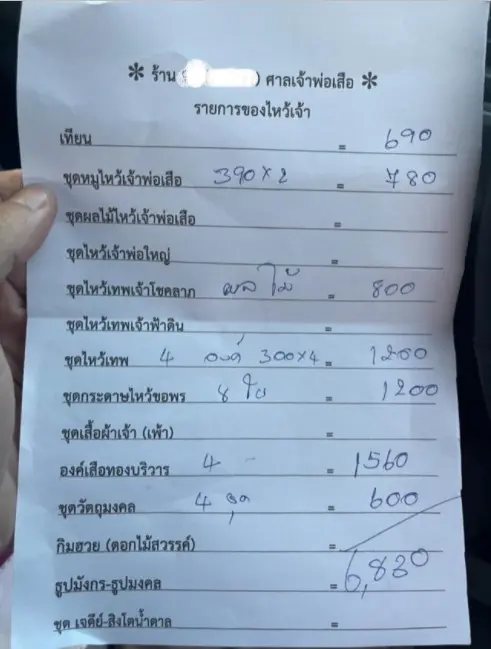 * ร้าน ศาลเจ้าพ่อเสือ *
รายการของไหว้เจ้า
เทียน = 690
ชุดหมูไหว้เจ้าพ่อเสือ 390x2 = 780
ชุดผลไม้ไหว้เจ้าพ่อเสือ =
ชุดไหว้เจ้าพ่อใหญ่ =
ชุดไหว้เทพเจ้าโชคลาภ ผลไม้ = 800
ชุดไหว้เทพเจ้าฟ้าดิน =
ชุดไหว้เทพ 4 องค์ 300x4 = 1200
ชุดกระดาษไหว้ขอพร 8 ใบ = 1200
ชุดเสื้อผ้าเจ้า (เพ้า) =
องค์เสือทองบริวาร 4 - = 1560
ชุดวัตถุมงคล 4 ชุด = 600
กิมฮวย (ดอกไม้สวรรค์) =
ธูปมังกร-ธูปมงคล = 6,830
ชุด เจดีย์-สิงโตน้ำตาล =